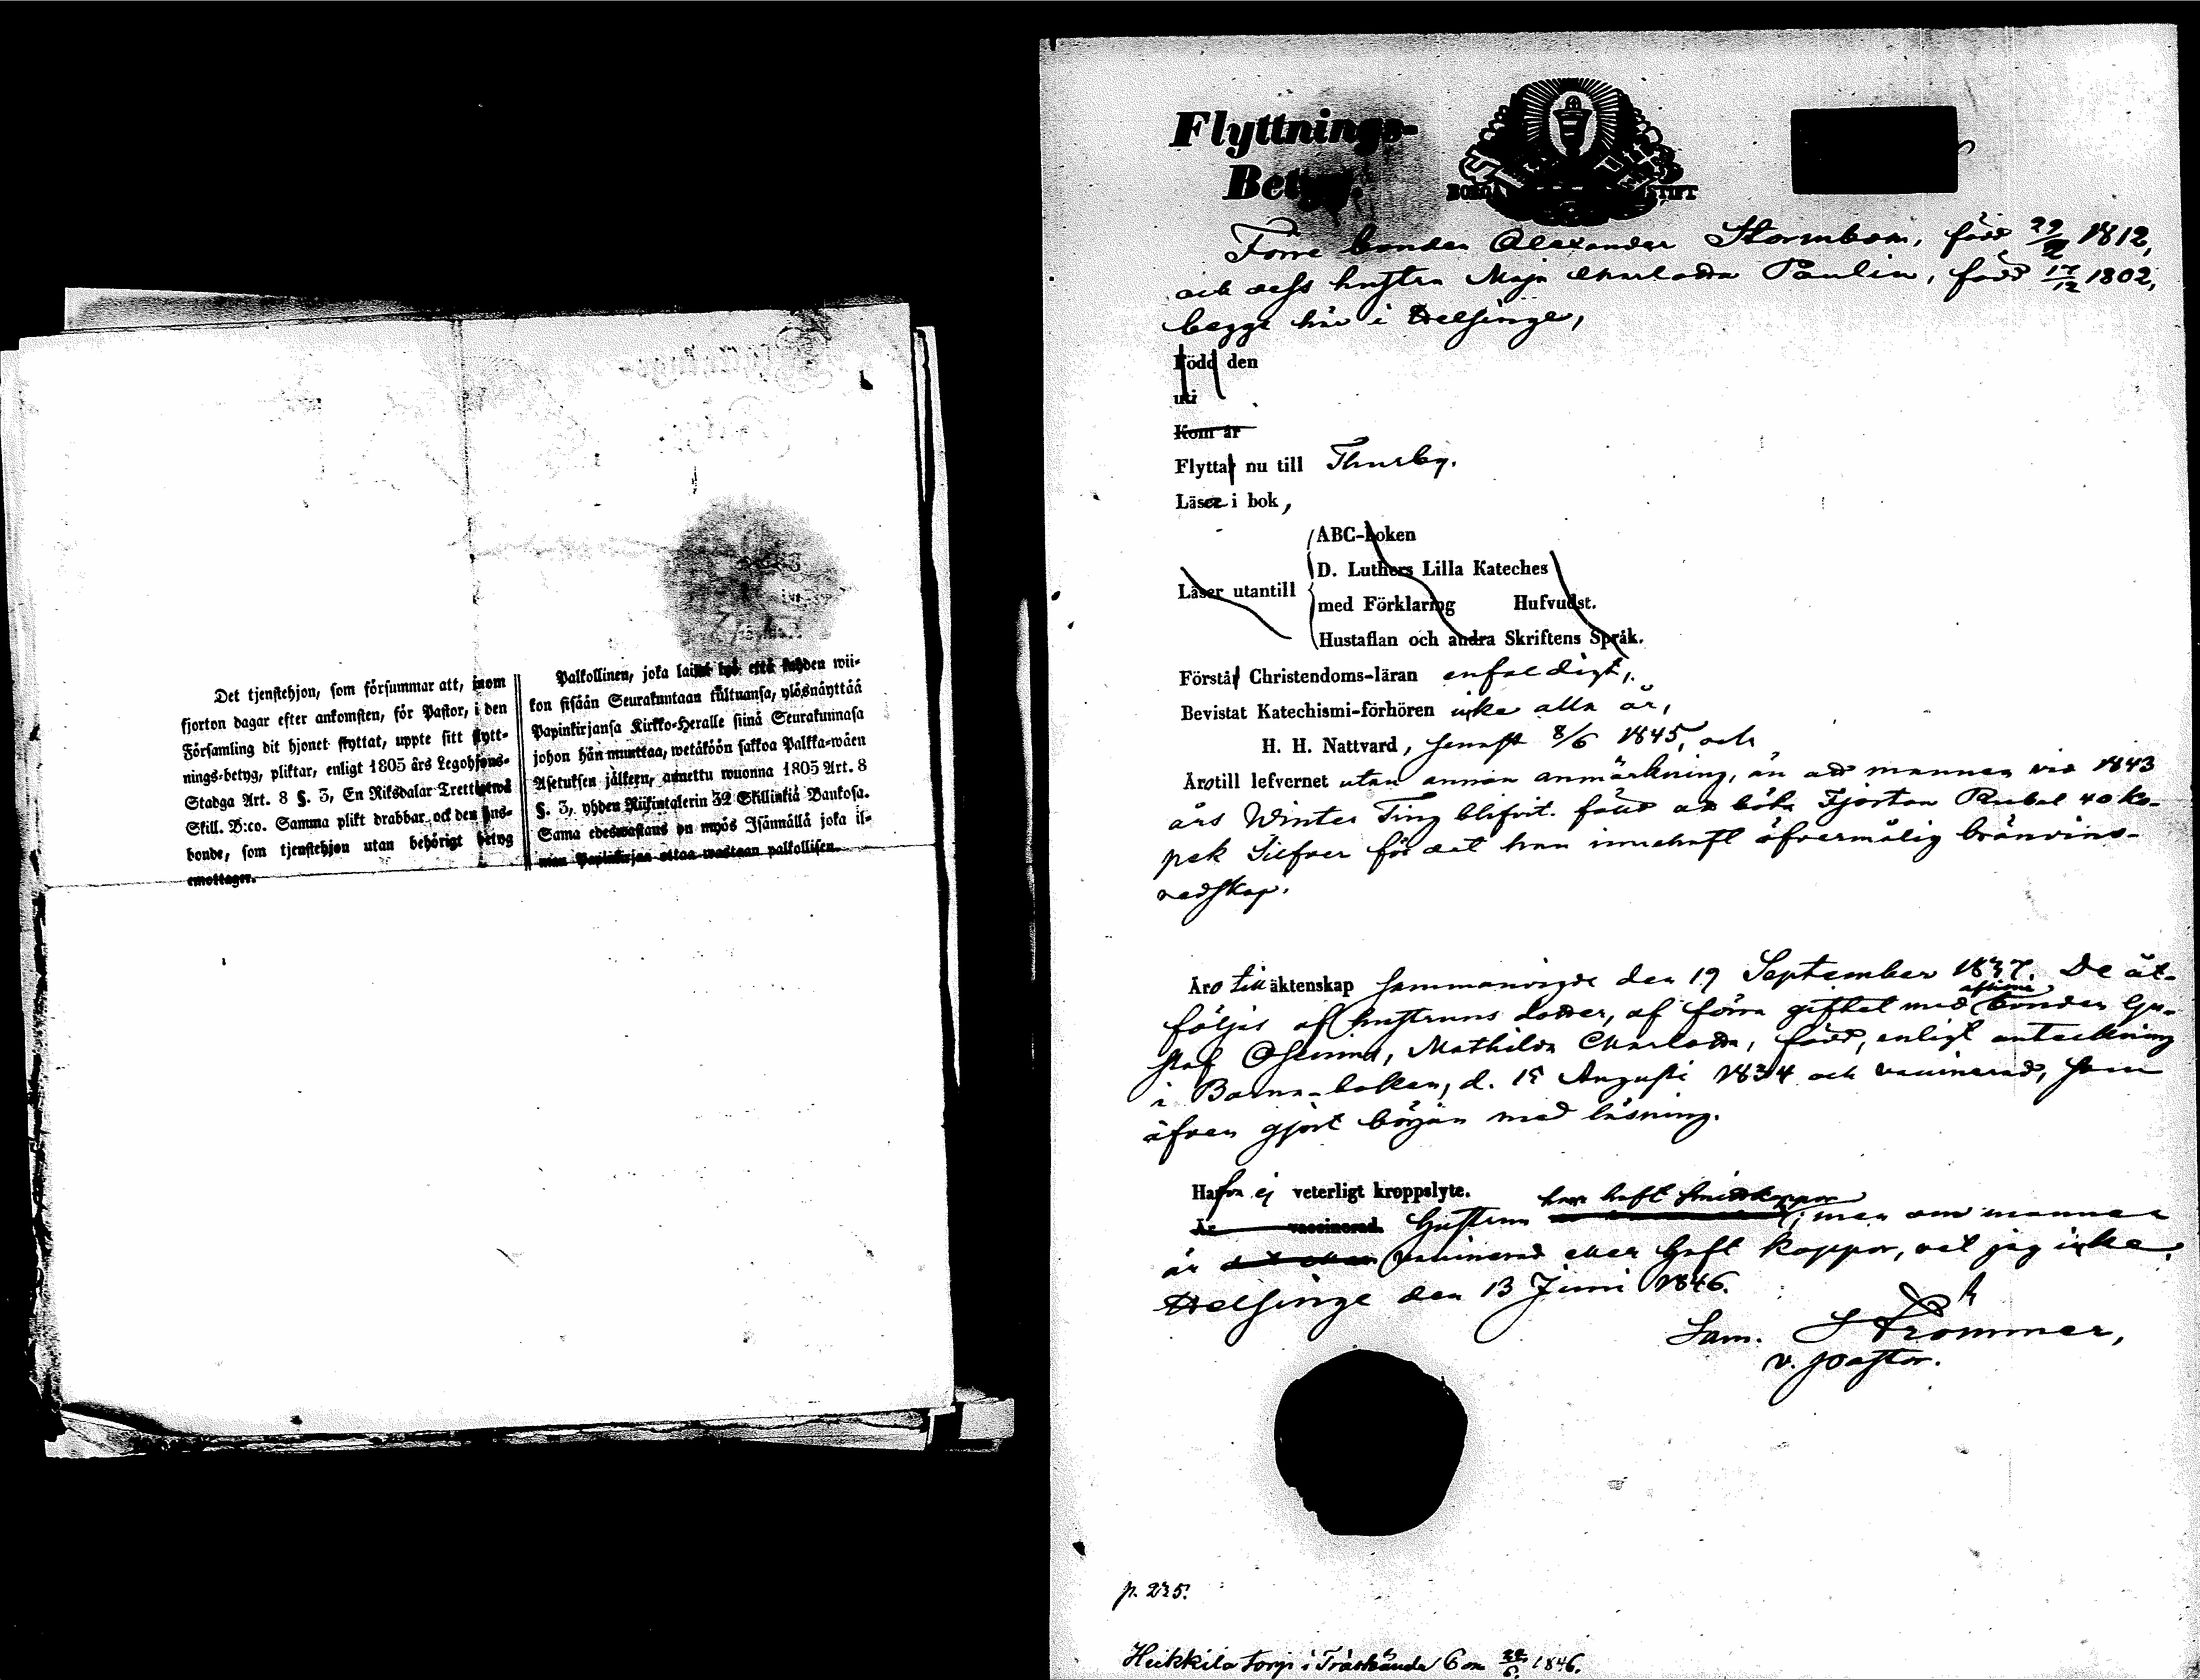 Det tjenstehjon, som försummar att, inom
fjorton dagar efter ankomsten, för Pastor, i den
Församling dit hjonet flyttat, uppte sitt flytt-
nings-betyg, pliktar, enligt 1805 års Legohjons-
Stadga Art. 8 §. 3, En Riksdalar Trettiotwå
Skill. B:co. Samma plikt drabbar ock den hus-
bonde, som tjenstehjon utan behörigt betyg
emottager.
Palkollinen, joka laimi lyö että kahden wii-
kon sisään Seurakuntaan tultuansa, ylösnäyttää
Papinkirjansa Kirkko-Heralle siinä Seurakunnasa
johon hän muuttaa, wetäköön sakkoa Palkka-wäen
Asetuksen jälkeen, annettu wuonna 1805 Art. 8
§. 3, yhden Riikintalerin 32 Skillinkiä Bankosa.
Sama edeswastaus on myös Isännällä joka il-
man Papinkirjaa ottaa wastaan palkollisen.
Flyttnings-
Betyg.
BORGÅ STIFT
Förre bonden Alexander Stormbom, född 29/2 1812,
och dess hustru Maja Charlotta Paulin, född 17/12 1802,
begge här i Helsinge,
Född den
uti
Kom år
Flyttar nu till Thusby.
Läser i bok,
ABC-boken
D. Luthers Lilla Kateches
Läser utantill
med Förklaring Hufvudst.
Hustaflan och andra Skriftens Språk.
Förstår Christendoms-läran enfaldigt,
Bevistat Katechismi-förhören icke alla år,
H. H. Nattvard, senast 8/6 1845, och
Äro till lefvernet utan annan anmärkning, än att mannen vid 1843
års Winter Ting blifvit fäld att böta Fjorton Rubel 40 ko-
pek Silfver för det han innehaft öfvermålig bränvins-
redskap.
Äro till äktenskap sammanvigde den 19 September 1837. De åt-
följas af hustruns dotter, af förra giftet med aflidne bonden Gu-
staf, Mathilda Charlotta, född, enligt anteckning
i Barna-boken, d. 15 Augusti 1834 och vaccinerad, som
äfven gjort början med läsning.
Hafva ej veterligt kroppslyte.
Är vaccinerad. Hustrun har haft smittkoppor; men om mannen
är vaccinerad eller haft koppor, vet jag icke.
Helsinge den 13 Juni 1846.
Sam. Strommer,
v. pastor.
p. 235.
Heikkilä torp i Träskända 6 22/6 1846.